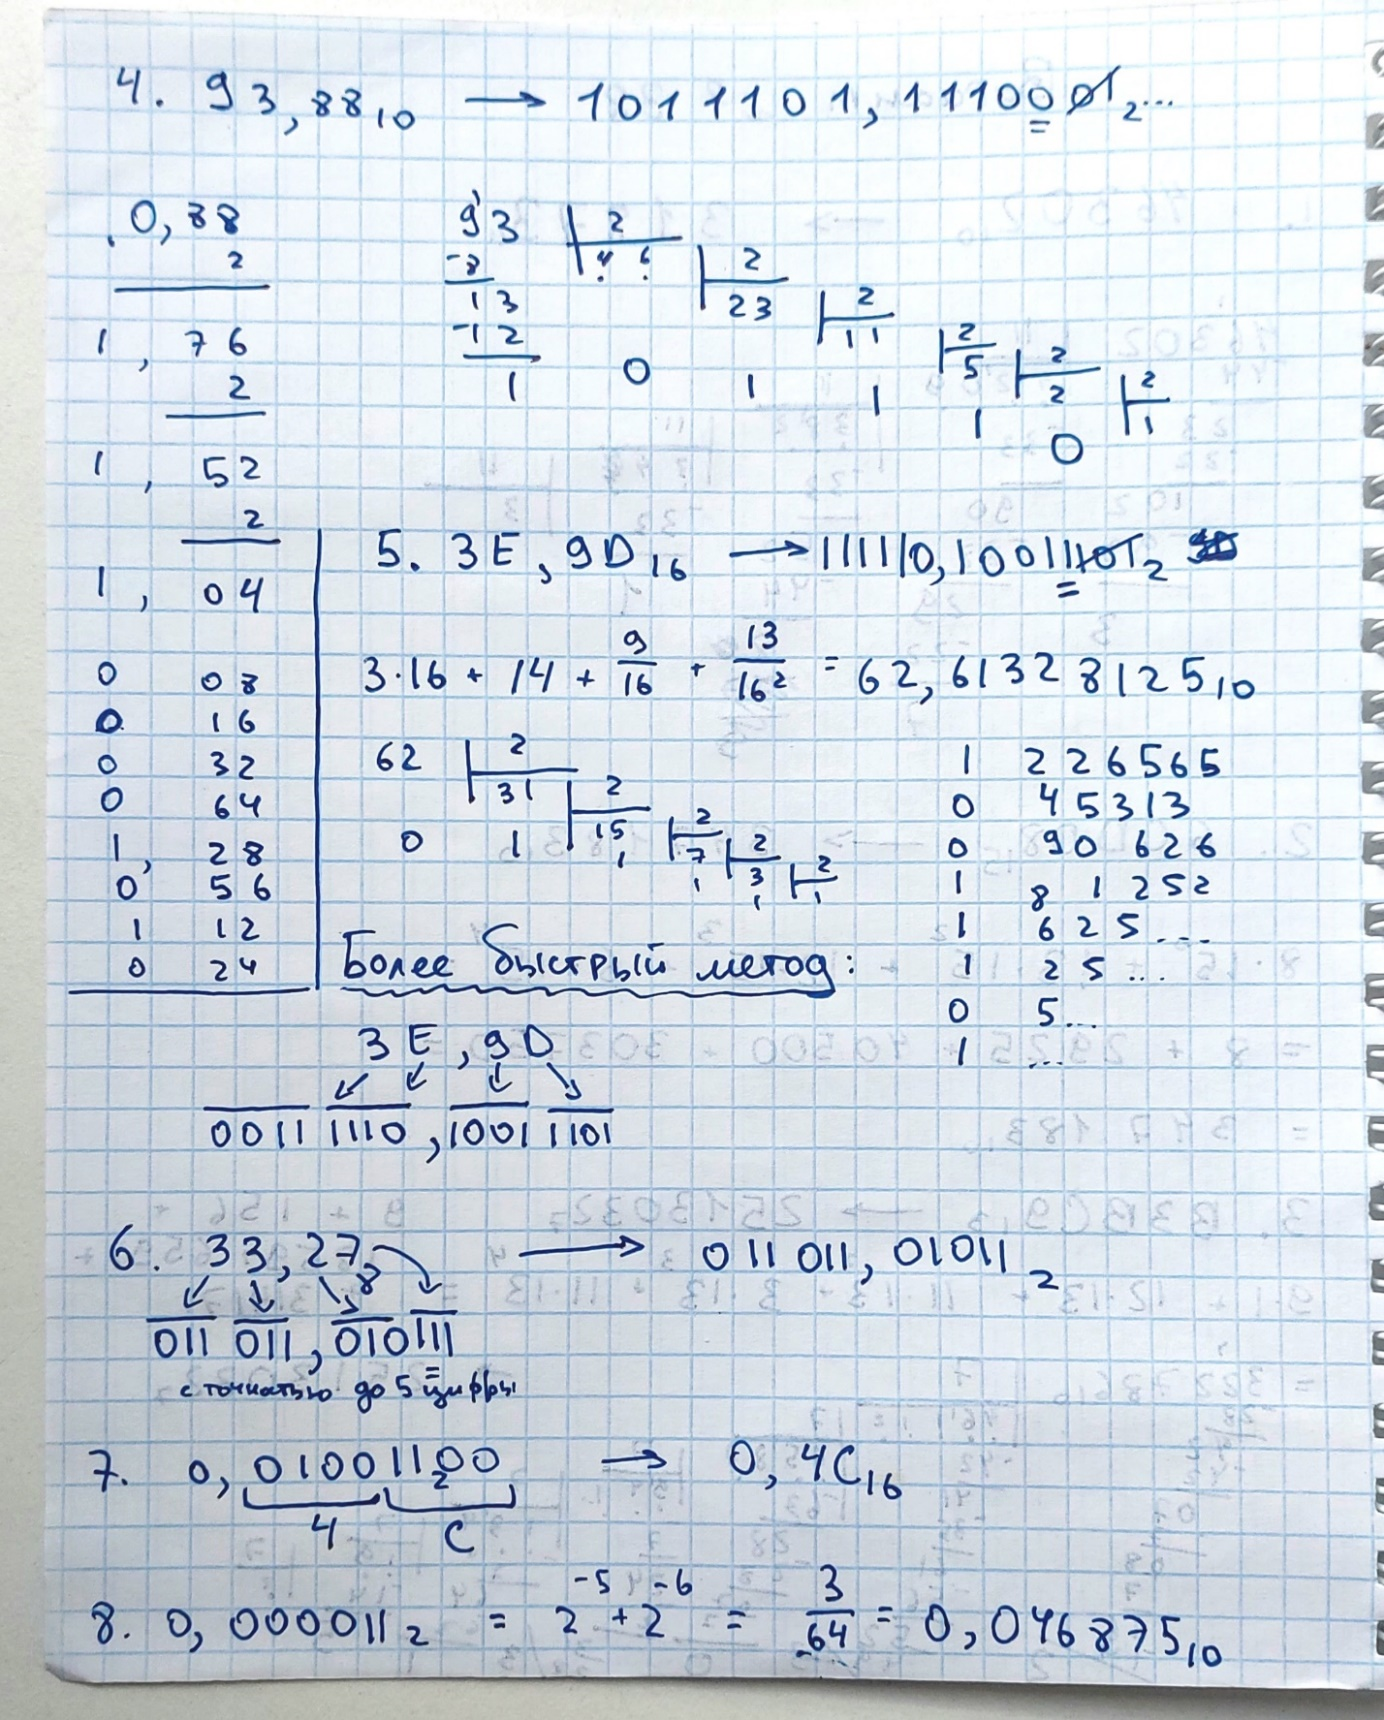 4. 93,88₁₀ → 1011101,1110001₂...
0,88
2
1,76
2
1,52
2
1,04
0 08
0 16
0 32
0 64
1, 28
0 56
1 12
0 24
93 | 2
-8 46 | 2
13 23 | 2
-12 11 | 2
1 0 1 1 5 | 2
1 2 | 2
0 1
5. 3E,9D₁₆ → 111110,10011101₂
3·16 + 14 + 9/16 + 13/16² = 62,6132 8125₁₀
62 | 2
31 | 2
0 1 15 | 2
1 7 | 2
1 3 | 2
1 1
1 226565
0 45313
0 90 626
1 8 1 252
1 625...
1 25...
0 5...
1 ...
Более быстрый метод:
3E,9D
0011 1110,1001 1101
6. 33,27₈ → 011 011,01011₂
011 011,010111
с точнатью до 5 цифры
7. 0,01001100₂ → 0,4C₁₆
4 C
8. 0,000011₂ = 2⁻⁵+2⁻⁶ = 3/64 = 0,046875₁₀